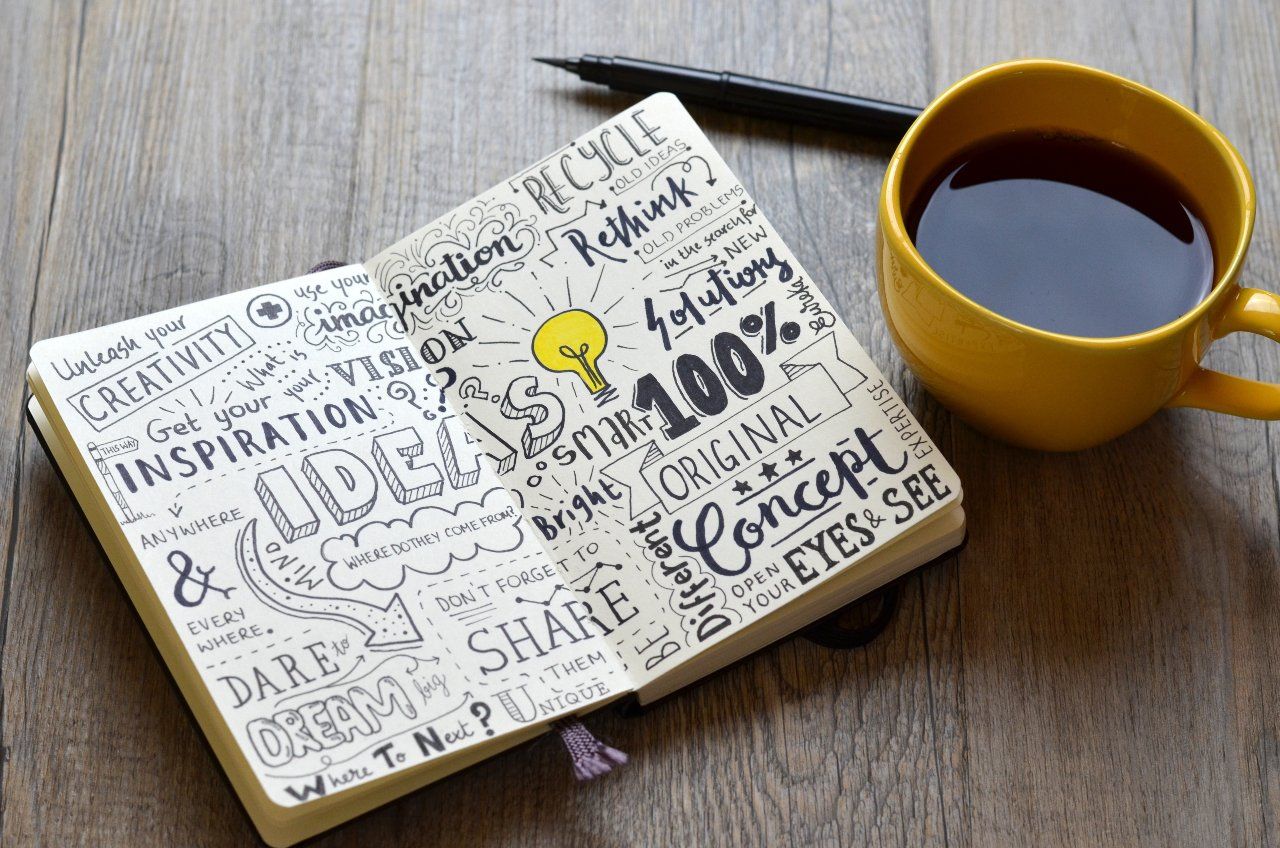 Unleash your
CREATIVITY
use your
imagination
What is
your VISION
Get your
INSPIRATION
THIS WAY
ANYWHERE
&
EVERY
WHERE.
IDEAS
MIND
WHERE DO THEY COME FROM?
DON'T FORGET TO
SHARE
THEM
DARE to
DREAM big
Where To Next?
UNIQUE
RECYCLE
OLD IDEAS
Rethink
OLD PROBLEMS
in the search for
NEW
Solutions
Eureka
100%
SMART
ORIGINAL
Bright
Concept
EXPERTISE
BE Different
OPEN
YOUR EYES & SEE